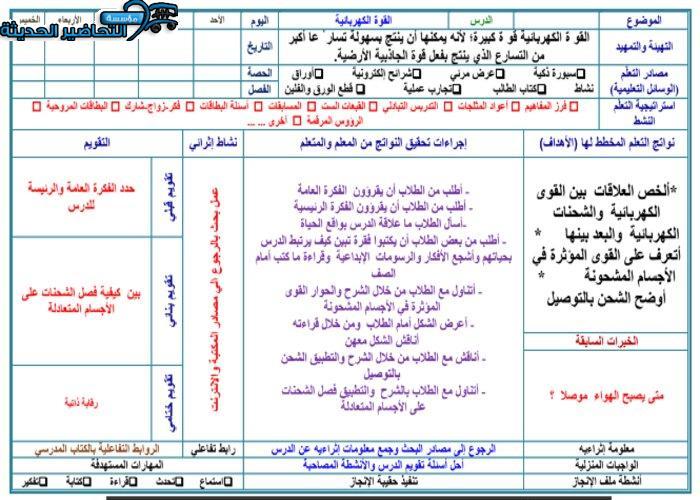 مؤسسة
التحاضير الحديثة
الموضوع الدرس القوة الكهربائية اليوم الأحد الأربعاء الخميس
التهيئة والتمهيد القو ة الكهربائية قو ة كبيرة؛ لأنه يمكنها أن ينتج بسهولة تسار ًعا أكبر
من التسارع الذي ينتج بفعل قوة الجاذبية الأرضية. التاريخ
مصادر التعلم سبورة ذكية عرض مرئي شرائح إلكترونية أوراق الحصة
(الوسائل التعليمية) نشاط كتاب الطالب تجارب عملية قطع الورق والفلين الفصل
استراتيجية التعلم فرز المفاهيم أعواد المثلجات التدريس التبادلي القبعات الست المسابقات أسئلة البطاقات فكر-زواج-شارك البطاقات المروحية
النشط الرؤوس المرقمة أخرى ... ...
نواتج التعلم المخطط لها (الأهداف) إجراءات تحقيق النواتج من المعلم والمتعلم نشاط إثرائي التقويم
*ألخص العلاقات بين القوى
الكهربائية والشحنات
الكهربائية والبعد بينها *
أتعرف على القوى المؤثرة في
الأجسام المشحونة *
أوضح الشحن بالتوصيل
الخبرات السابقة
متى يصبح الهواء موصلا ؟
- أطلب من الطلاب أن يقرؤون الفكرة العامة
- أطلب من الطلاب أن يقرؤون الفكرة الرئيسية
-أسأل الطلاب ما علاقة الدرس بواقع الحياة
- أطلب من بعض الطلاب أن يكتبوا فقرة تبين كيف يرتبط الدرس
بحياتهم وأشجع الأفكار والرسومات الإبداعية وقراءة ما كتب أمام
الصف
- أتناول مع الطلاب من خلال الشرح والحوار القوى
المؤثرة في الأجسام المشحونة
- أعرض الشكل أمام الطلاب ومن خلال قراءته
أناقش الشكل معهن
- أناقش مع الطلاب من خلال الشرح والتطبيق الشحن
بالتوصيل
- أتناول مع الطلاب بالشرح والتطبيق فصل الشحنات
على الأجسام المتعادلة
عمل بحث بالرجوع الي مصادر المكتبة والانترنت
تقويم قبلي
حدد الفكرة العامة والرئيسة
للدرس
تقويم بنائي
بين كيفية فصل الشحنات على
الأجسام المتعادلة
تقويم ختامي
رقابة ذاتية
معلومة إثرائيه الرجوع إلى مصادر البحث وجمع معلومات إثراءيه عن الدرس رابط تفاعلي الروابط التفاعلية بالكتاب المدرسي
الواجبات المنزلية أحل أسئلة تقويم الدرس والأنشطة المصاحبة المهارات المستهدفة
أنشطة ملف الإنجاز تنفيذ حقيبة الإنجاز استماع تحدث قراءة كتابة تفكير